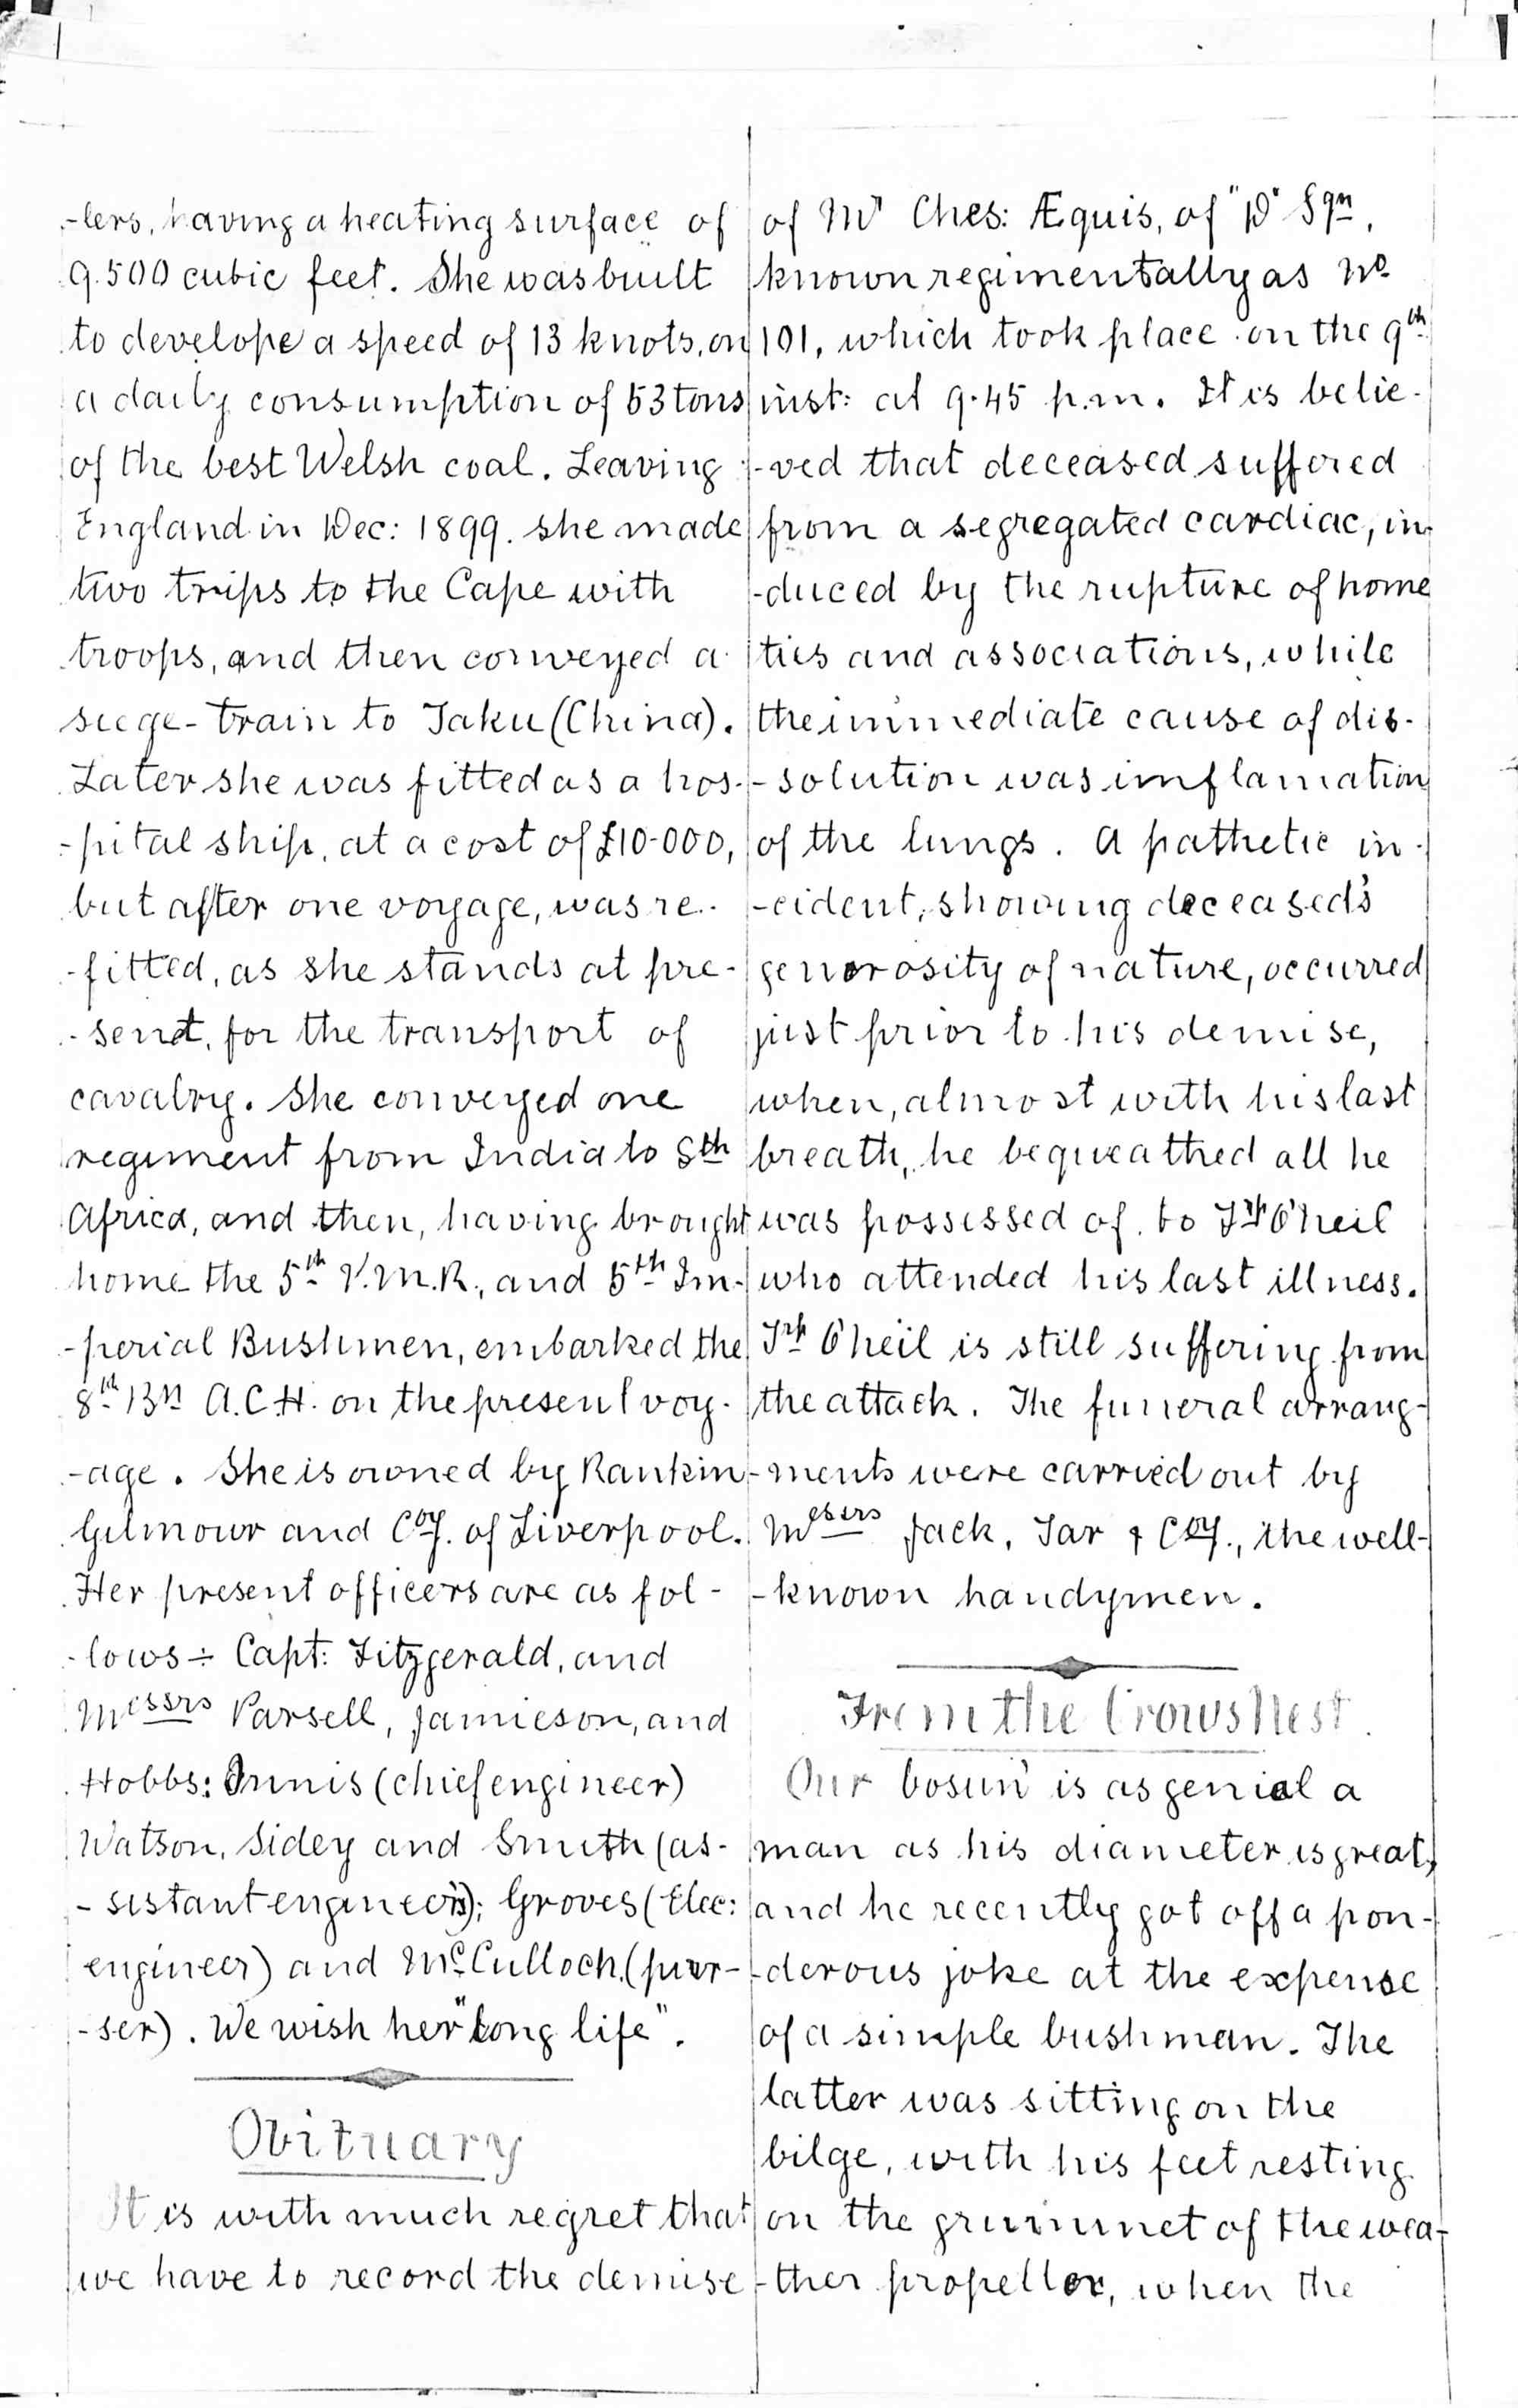 -lers, having a heating surface of
9.500 cubic feet. She was built
to develope a speed of 13 knots, on
a daily consumption of 53 tons
of the best Welsh coal. Leaving
England in Dec: 1899. she made
two trips to the Cape with
troops, and then conveyed a
siege-train to Taku (China).
Later she was fitted as a hos-
-pital ship, at a cost of £10.000,
but after one voyage, was re-
-fitted, as she stands at pre-
-sent, for the transport of
cavalry. She conveyed one
regiment from India to Sth
Africa, and then, having brought
home the 5th V.M.R., and 5th Im-
-perial Bushmen, embarked the
8th Bn A.C.H. on the present voy-
-age. She is owned by Rankin
Gilmour and Coy. of Liverpool.
Her present officers are as fol-
-lows÷ Capt: Fitzgerald, and
Messrs Parsell, Jamieson, and
Hobbs: Innis (chief engineer)
Watson, Sidey and Smith (as-
-sistant engineers); Groves (Elec:
engineer) and McCulloch (pur-
-ser). We wish her "long life".
Obituary
It is with much regret that
we have to record the demise
of Mr Ches: Æquis, of "D" Sqn,
known regimentally as No
101, which took place on the 9th
inst: at 9.45 p.m. It is belie-
-ved that deceased suffered
from a segregated cardiac, in-
-duced by the rupture of home
ties and associations, while
the immediate cause of dis-
-solution was imflamation
of the lungs. A pathetic in-
-cident, showing deceased's
generosity of nature, occurred
just prior to his demise,
when, almost with his last
breath, he bequeathed all he
was possessed of, to Trp O'neil
who attended his last illness.
Trp O'neil is still suffering from
the attack. The funeral arrang-
-ments were carried out by
Messrs Jack, Tar & Coy., the well-
-known handymen.
From the Crows Nest.
Our bosun' is as genial a
man as his diameter is great,
and he recently got off a pon-
-derous joke at the expense
of a simple bushman. The
latter was sitting on the
bilge, with his feet resting
on the grummet of the wea-
-ther propellor, when the